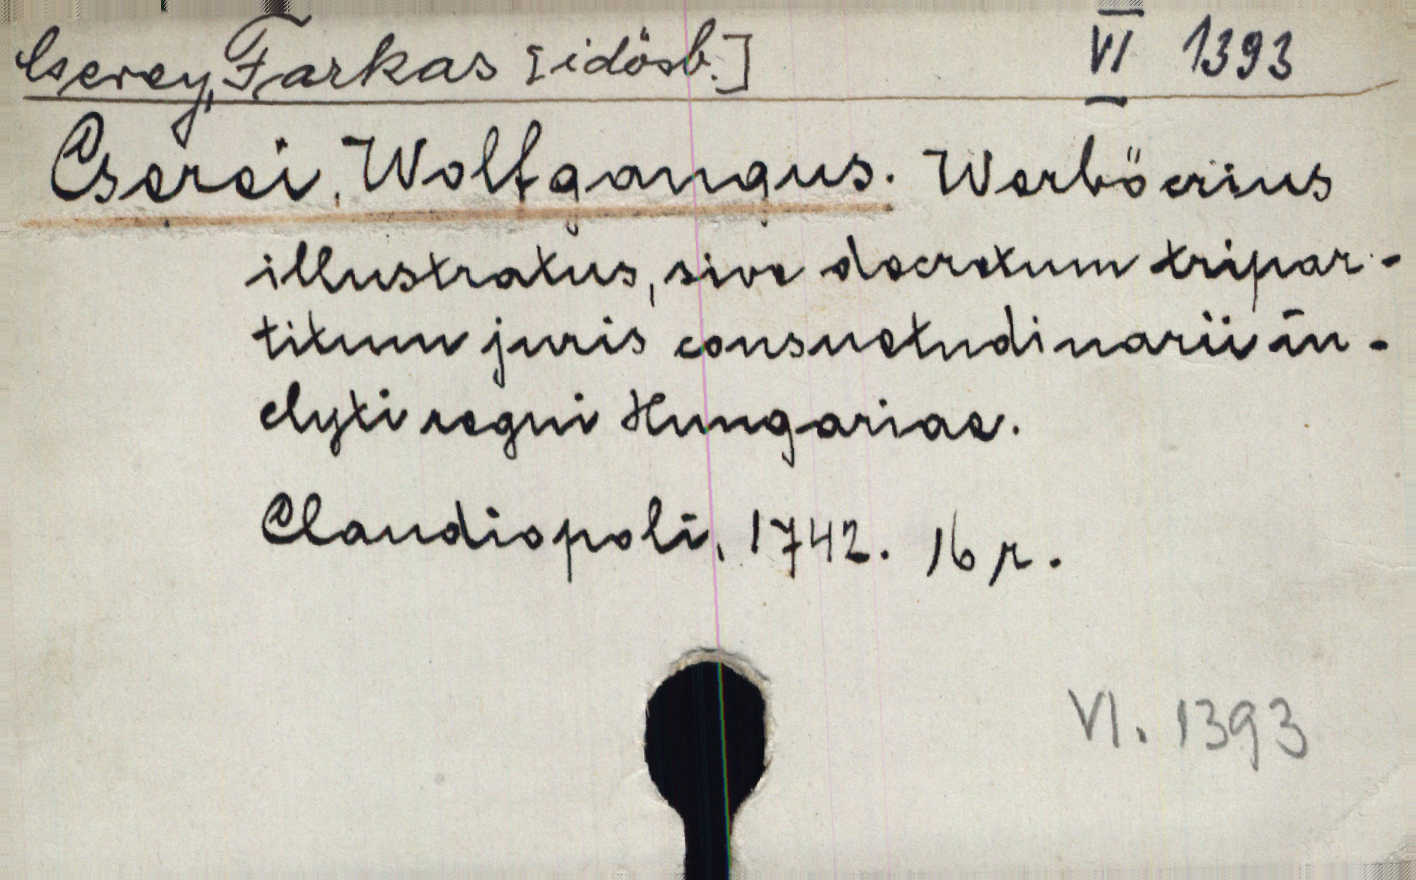 Cserey, Farkas [idösb.] VI 1393
Cserei, Wolfgangus. Werböcrius
illustratus, sive decretum tripar-
titum juris consuetudinarii in-
clyti regni Hungariae.
Claudiopoli, 1742. 16 r.
VI. 1393